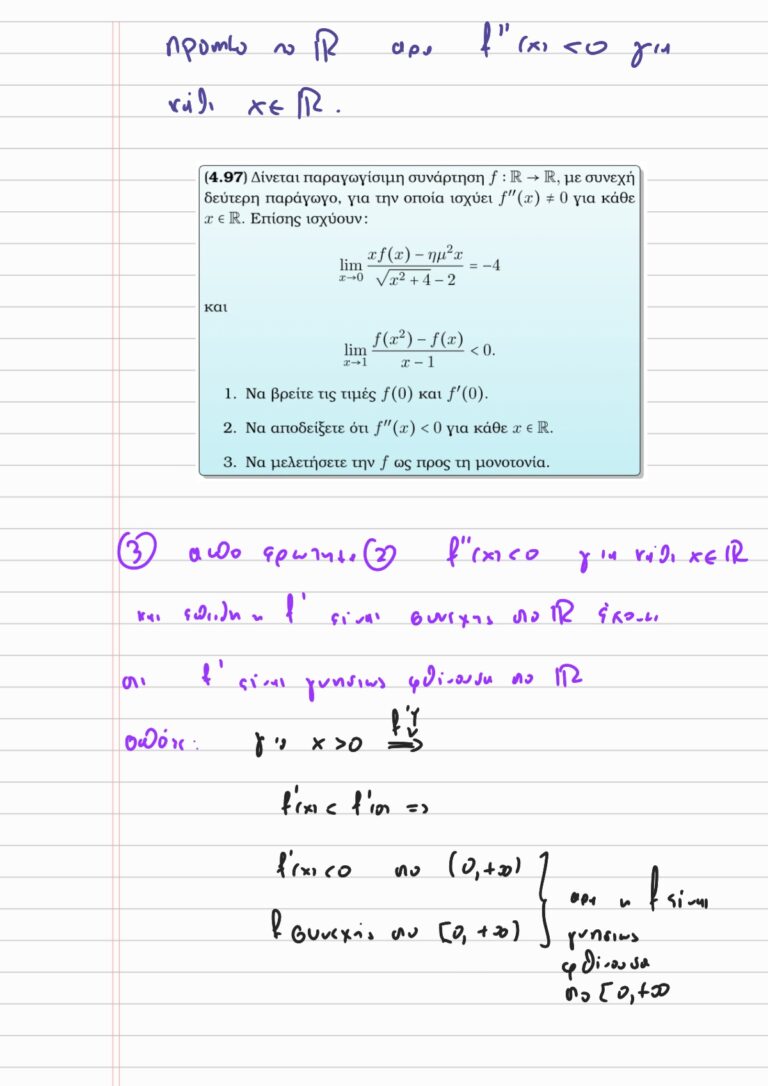 προσημο στο ℝ αρα f''(x) < 0 για
κάθε x ∈ ℝ.
(4.97) Δίνεται παραγωγίσιμη συνάρτηση f : ℝ → ℝ, με συνεχή
δεύτερη παράγωγο, για την οποία ισχύει f''(x) ≠ 0 για κάθε
x ∈ ℝ. Επίσης ισχύουν:
lim_{x→0} (xf(x) − ημ²x)/(√(x² + 4) − 2) = −4
και
lim_{x→1} (f(x²) − f(x))/(x − 1) < 0.
1. Να βρείτε τις τιμές f(0) και f'(0).
2. Να αποδείξετε ότι f''(x) < 0 για κάθε x ∈ ℝ.
3. Να μελετήσετε την f ως προς τη μονοτονία.
③ απο ερωτημα ② f''(x) < 0 για κάθε x ∈ ℝ
και επειδη η f' είναι συνεχης στο ℝ έχουμε
οτι f' είναι γνησιως φθίνουσα στο ℝ
οπότε: για x > 0 f'↘ ⟹
f'(x) < f'(0) =>
f'(x) < 0 στο (0, +∞)
f συνεχής στο [0, +∞) } αρα η f είναι
γνησιως
φθίνουσα
στο [0, +∞